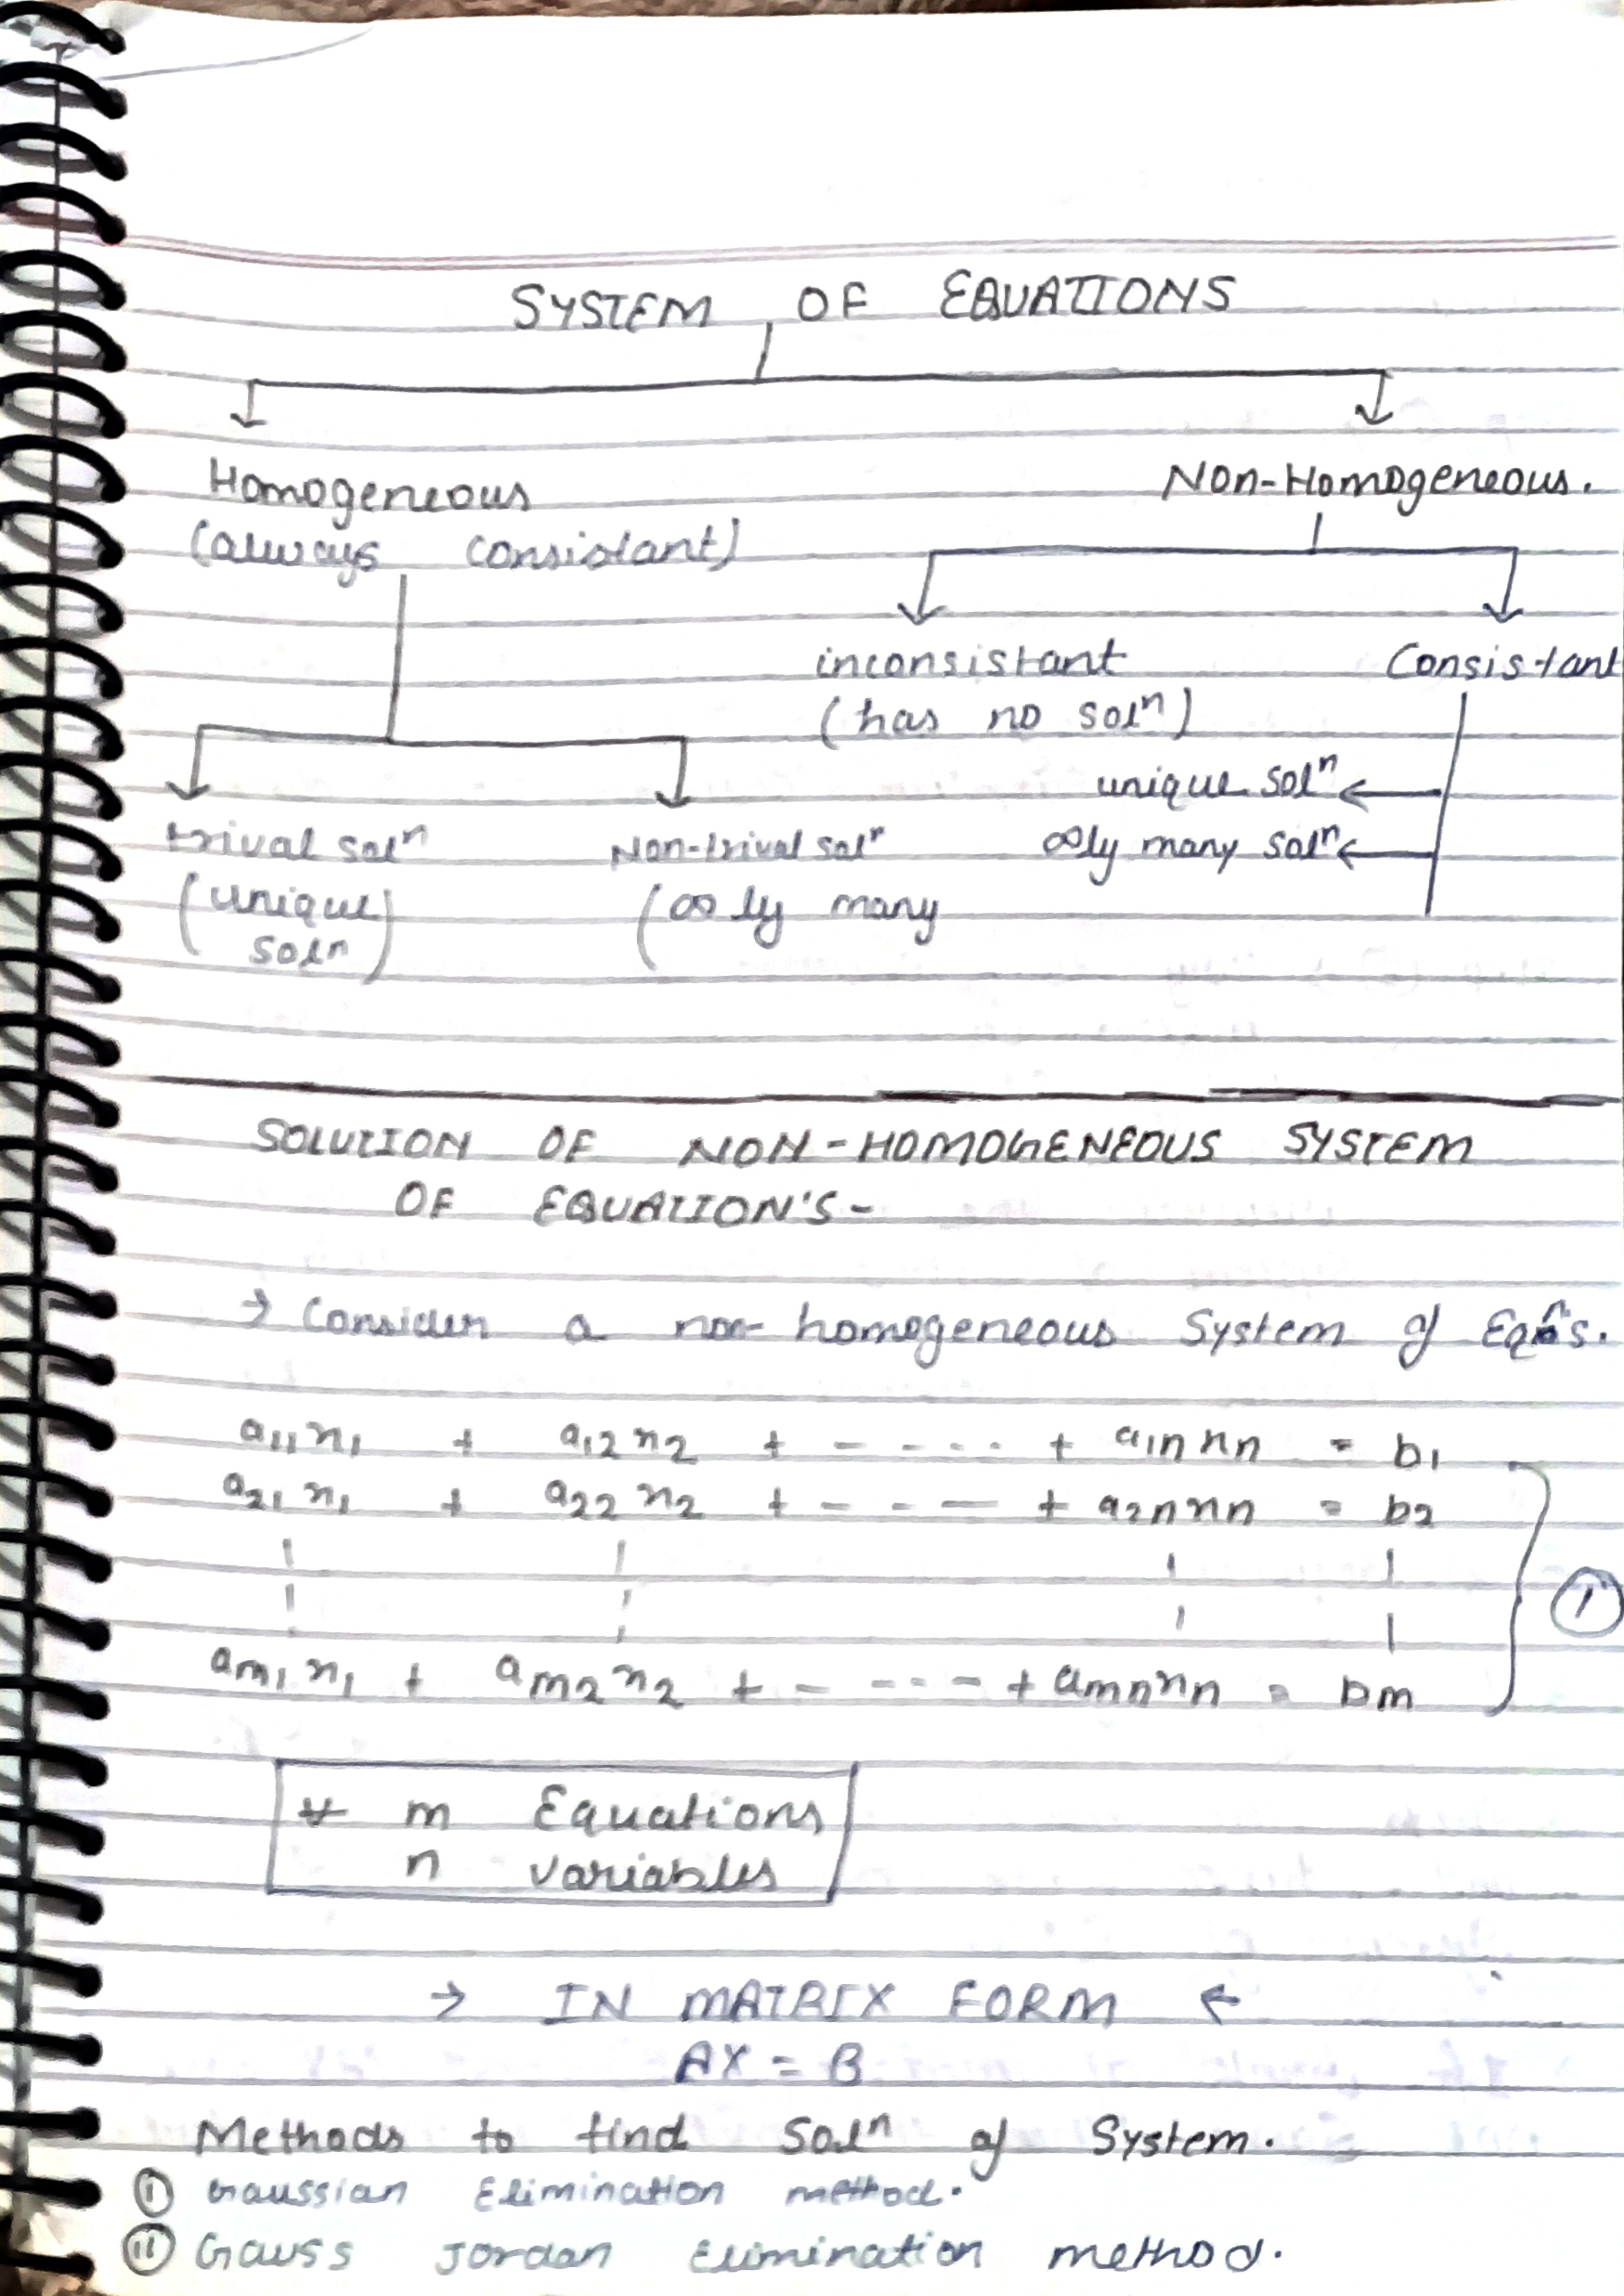 SYSTEM OF EQUATIONS
Homogeneous
(always consistant)
Non-Homogeneous.
trival solⁿ
(unique
solⁿ)
Non-trival solⁿ
(∞ly many
inconsistant
(has no solⁿ)
Consistant
unique solⁿ ←
∞ly many solⁿ ←
SOLUTION OF NON-HOMOGENEOUS SYSTEM
OF EQUATION'S -
→ Consider a non-homogeneous System of Eqⁿs.
a11x1 + a12x2 + - - - - + a1nxn = b1
a21x1 + a22x2 + - - - + a2nxn = b2
am1x1 + am2x2 + - - - - + amnxn = bm
①
* m Equations
n variables
→ IN MATRIX FORM ←
AX = B
Methods to find Solⁿ of System.
(i) Gaussian Elimination method.
(ii) Gauss Jordan Elimination method.